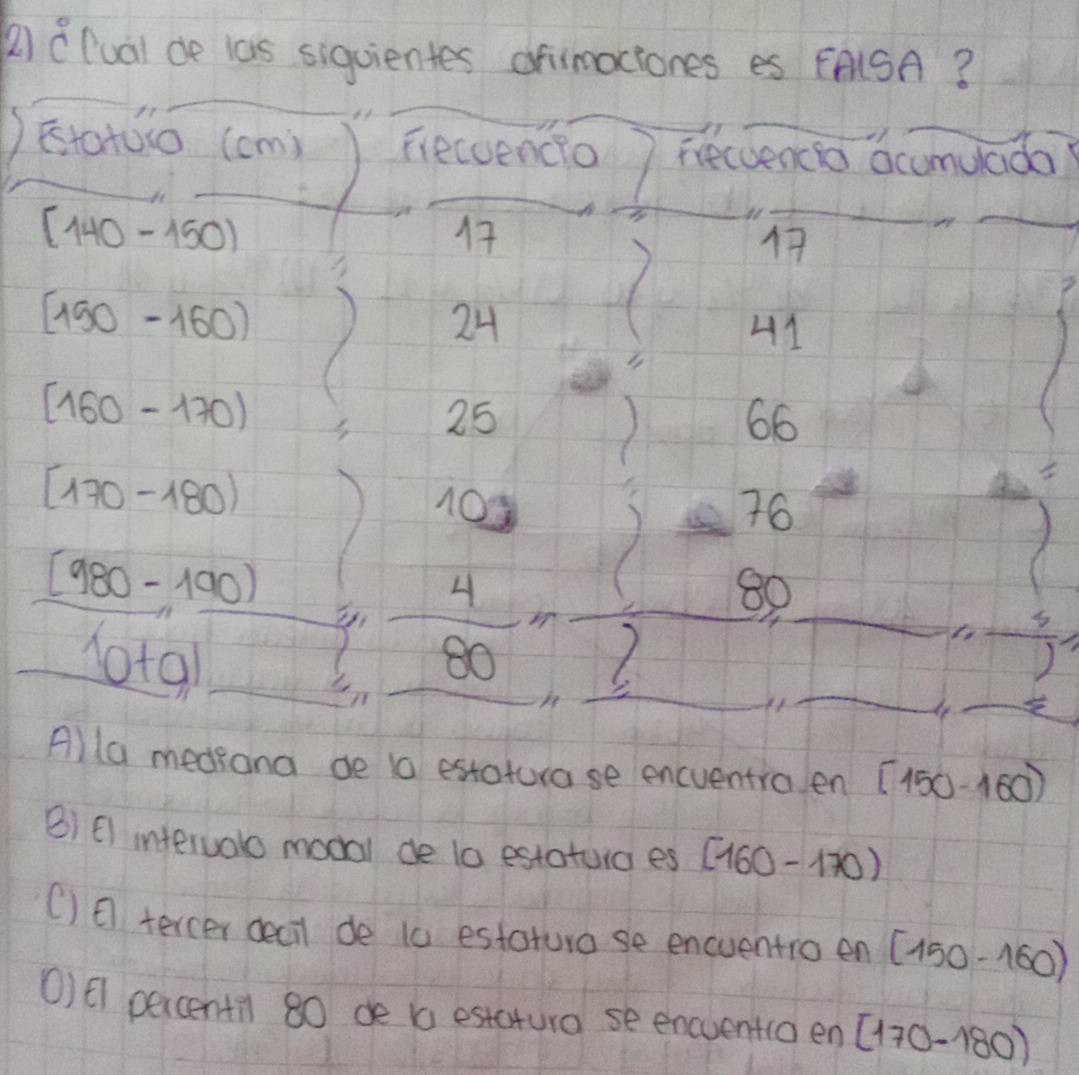 2) ¿Cuál de las siguientes afirmaciones es FALSA?
Estatura (cm) Frecuencia Frecuencia acumulada
[140-150) 17 17
[150-160) 24 41
[160-170) 25 66
[170-180) 10 76
[980-190) 4 80
Total 80
A) la mediana de la estatura se encuentra en [150-160)
B) El intervalo modal de la estatura es [160-170)
C) El tercer decil de la estatura se encuentra en [150-160)
D) El percentil 80 de la estatura se encuentra en [170-180)